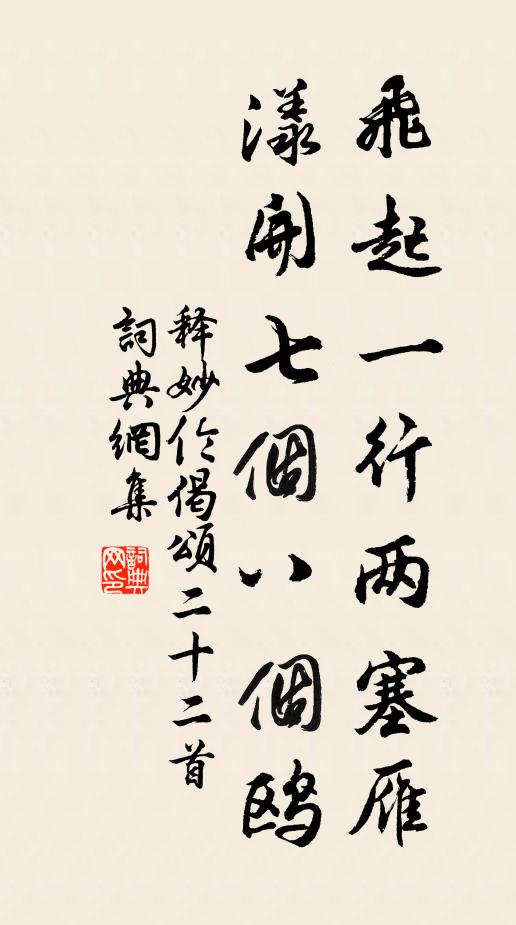 飛起一行两塞雁
漾開七個八個鸥
释妙伦偈頌二十二首
詞典網集
詞典網印